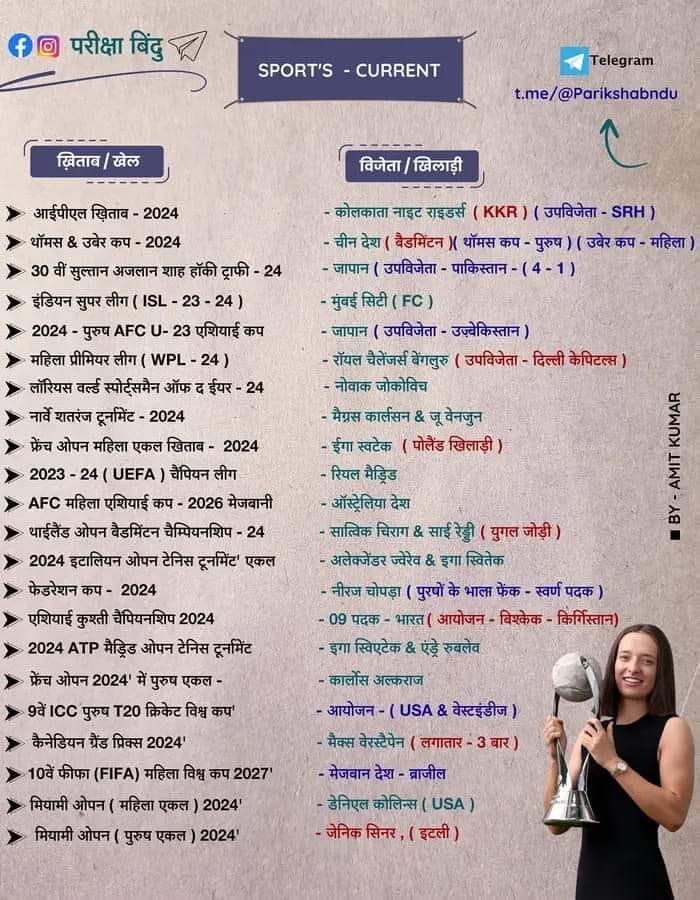 परीक्षा बिंदु
SPORT'S - CURRENT
Telegram
t.me/@Parikshabndu
ख़िताब / खेल
विजेता / खिलाड़ी
आईपीएल ख़िताब - 2024 - कोलकाता नाइट राइडर्स ( KKR ) ( उपविजेता - SRH )
थॉमस & उबेर कप - 2024 - चीन देश ( बैडमिंटन )( थॉमस कप - पुरुष ) ( उबेर कप - महिला )
30 वीं सुल्तान अजलान शाह हॉकी ट्राफी - 24 - जापान ( उपविजेता - पाकिस्तान - ( 4 - 1 )
इंडियन सुपर लीग ( ISL - 23 - 24 ) - मुंबई सिटी ( FC )
2024 - पुरुष AFC U- 23 एशियाई कप - जापान ( उपविजेता - उज़्बेकिस्तान )
महिला प्रीमियर लीग ( WPL - 24 ) - रॉयल चैलेंजर्स बेंगलुरु ( उपविजेता - दिल्ली केपिटल्स )
लॉरियस वर्ल्ड स्पोर्ट्समैन ऑफ द ईयर - 24 - नोवाक जोकोविच
नार्वे शतरंज टूर्नामेंट - 2024 - मैग्नस कार्लसन & जू वेनजुन
फ्रेंच ओपन महिला एकल खिताब - 2024 - ईगा स्वटेक ( पोलैंड खिलाड़ी )
2023 - 24 ( UEFA ) चैंपियन लीग - रियल मैड्रिड
AFC महिला एशियाई कप - 2026 मेजबानी - ऑस्ट्रेलिया देश
थाईलैंड ओपन बैडमिंटन चैम्पियनशिप - 24 - सात्विक चिराग & साई रेड्डी ( युगल जोड़ी )
2024 इटालियन ओपन टेनिस टूर्नामेंट' एकल - अलेक्जेंडर ज्वेरेव & इगा स्वितेक
फेडरेशन कप - 2024 - नीरज चोपड़ा ( पुरषों के भाला फेंक - स्वर्ण पदक )
एशियाई कुश्ती चैंपियनशिप 2024 - 09 पदक - भारत ( आयोजन - बिश्केक - किर्गिस्तान)
2024 ATP मैड्रिड ओपन टेनिस टूर्नामेंट - इगा स्विएटेक & एंड्रे रुबलेव
फ्रेंच ओपन 2024' में पुरुष एकल - - कार्लोस अल्कराज
9वें ICC पुरुष T20 क्रिकेट विश्व कप' - आयोजन - ( USA & वेस्टइंडीज )
कैनेडियन ग्रैंड प्रिक्स 2024' - मैक्स वेरस्टैपेन ( लगातार - 3 बार )
10वें फीफा (FIFA) महिला विश्व कप 2027' - मेजबान देश - ब्राजील
मियामी ओपन ( महिला एकल ) 2024' - डेनिएल कोलिन्स ( USA )
मियामी ओपन ( पुरुष एकल ) 2024' - जेनिक सिनर , ( इटली )
BY - AMIT KUMAR